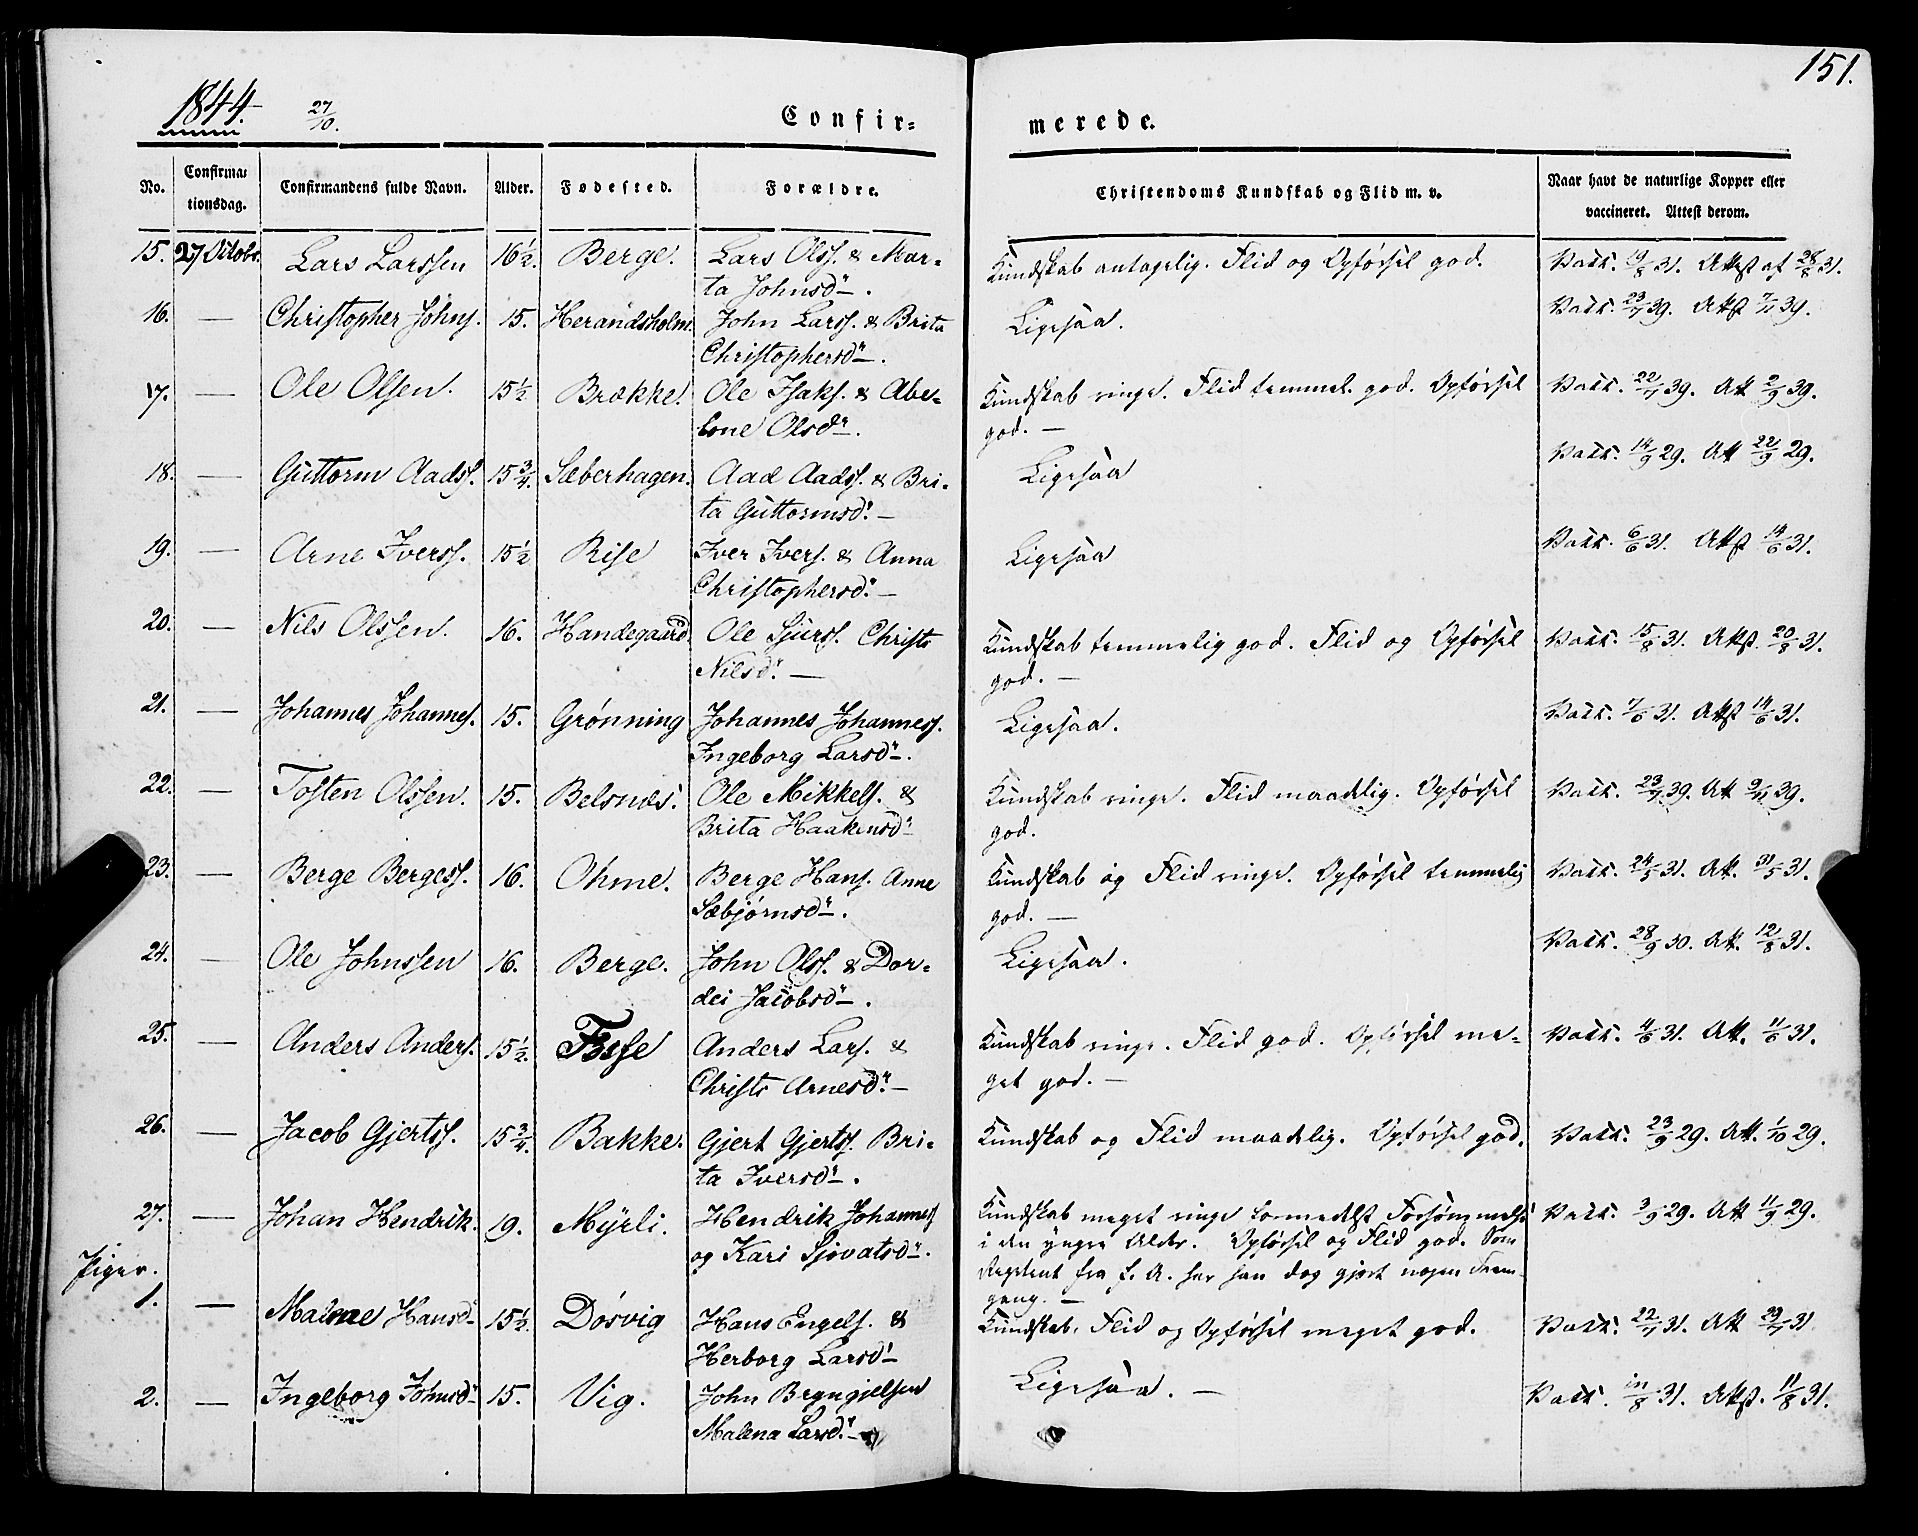 151.
1844. 27/10. Confir= merede.
No. Confirma= tionsdag. Confirmandens fulde Navn. Alder. Fødested. Forældre. Christendoms Kundskab og Flid m. v. Naar havt de naturlige Kopper eller vaccineret. Attest derom.
15. 27 Octobr. Lars Larssen 16½. Berge. Lars Olss. & Mar- Kundskab antagelig. Flid og Opførsel god. Vacc. 19/8 31. Attest af 28/8 31.
ta Johnsdr.
16. — Christopher Johns. 15. Herandsholm. John Larss. & Brita Ligesaa. Vacc. 23/7 39. Attst 39.
Christophersdr.
17. — Ole Olsen. 15½ Brække. Ole Isaks. & Abe- Kundskab ringe. Flid temmel. god. Opførsel Vacc. 22/7 39. Att 2/9 39.
lone Olsdr. god. —
18. — Guttorm Aadss. 15¾. Sæberhagen. Aad Aadss. & Bri- Ligesaa Vacc. 14/9 29. Att 22/9 29.
ta Guttormsdr. —
19. — Arne Iverss. 15½ Rise Iver Ivers. & Anna Ligesaa Vacc. 6/6 31. Attst 14/6 31.
Christophersdr. —
20. — Nils Olssen. 16. Handegaard. Ole Sjurss. Christi Kundskab temmelig god. Flid og Opførsel Vacc. 15/8 31. Attst. 20/8 31.
Nilsdr. — god. —
21. — Johannes Johannes. 15. Grønning Johannes Johanness. Ligesaa. Vacc. 7/6 31. Attst 14/6 31.
Ingeborg Larsdr.
22. — Tosten Olssen. 15. Belsnæs. Ole Mikkels. & Kundskab ringe. Flid maadelig. Opførsel Vacc. 23/7 39. Att 39.
Brita Haakensdr god.
23. — Berge Bergess. 16. Ohme. Berge Hans. Anne Kundskab og Flid ringe. Opførsel temmelig Vacc. 24/5 31. Att. 31/5 31.
Sæbjørnsdr. god. —
24. — Ole Johnssen 16. Berge. John Olss. & Dor- Ligesaa. Vacc. 28/9 30. Att. 12/8 31.
dei Jacobsdr.
25. — Anders Anders. 15½. Fosse Anders Lars. & Kundskab ringe. Flid god. Opførsel me- Vacc. 4/6 31. Att. 11/6 31.
Christi Arnesdr. — get god. —
26. — Jacob Gjertss. 15¾. Bakke. Gjert Gjertss. Bri- Kundskab og Flid maadelig. Opførsel god. Vacc. 23/9 29. Att. 1/10 29.
ta Iversdr.
27. — Johan Hendrik. 19. Myrli. Hendrik Johanness Kundskab meget ringe formedelst Forsømmelse Vacc. 3/9 29. Att 11/9 29.
og Kari Sjovatsdr. i den yngre Alder. Opførsel og Flid god. Som
Piger. Repetent fra f. A. har han dog gjort nogen Frem-
gang. —
1. — Malene Hansdr 15½. Dorvig Hans Engels. & Kundskab, Flid og Opførsel meget god. Vacc. 22/7 31. Att 29/7 31
Herborg Larsdr
2. — Ingeborg Johnsdr 15. Vig. John Bryngjelsen Ligesaa. — Vacc. 31. Attst. 11/8 31.
Malena Larsdr. —